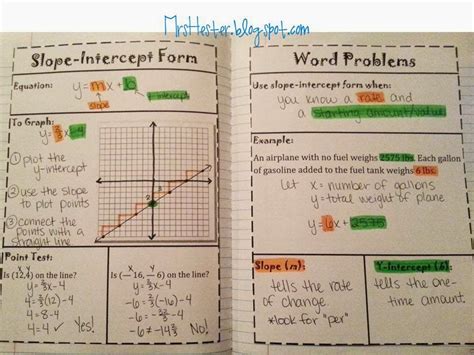 MrsHester.blogspot.com
Slope-Intercept Form
Equation: y=mx+b
slope
y-intercept
To Graph:
y=⅔x-4
① plot the
y-intercept
② use the slope
to plot points
③ connect the
points with a
straight line
Point Test:
Is (12,4) on the line?
x y
y=⅔x-4
4=⅔(12)-4
4=8-4
4=4✓ Yes!
Is (-16,-6) on the line?
x y
y=⅔x-4
-6=⅔(-16)-4
-6≠-14⅔
No!
Word Problems
Use slope-intercept form when:
you know a rate and
a starting amount/value
Example:
An airplane with no fuel weighs 2575 lbs. Each gallon
of gasoline added to the fuel tank weighs 6 lbs.
Let x=number of gallons
y=total weight of plane
y=6x+2575
Slope (m):
tells the rate
of change
*look for "per"
Y-Intercept (b):
tells the one-
time amount.